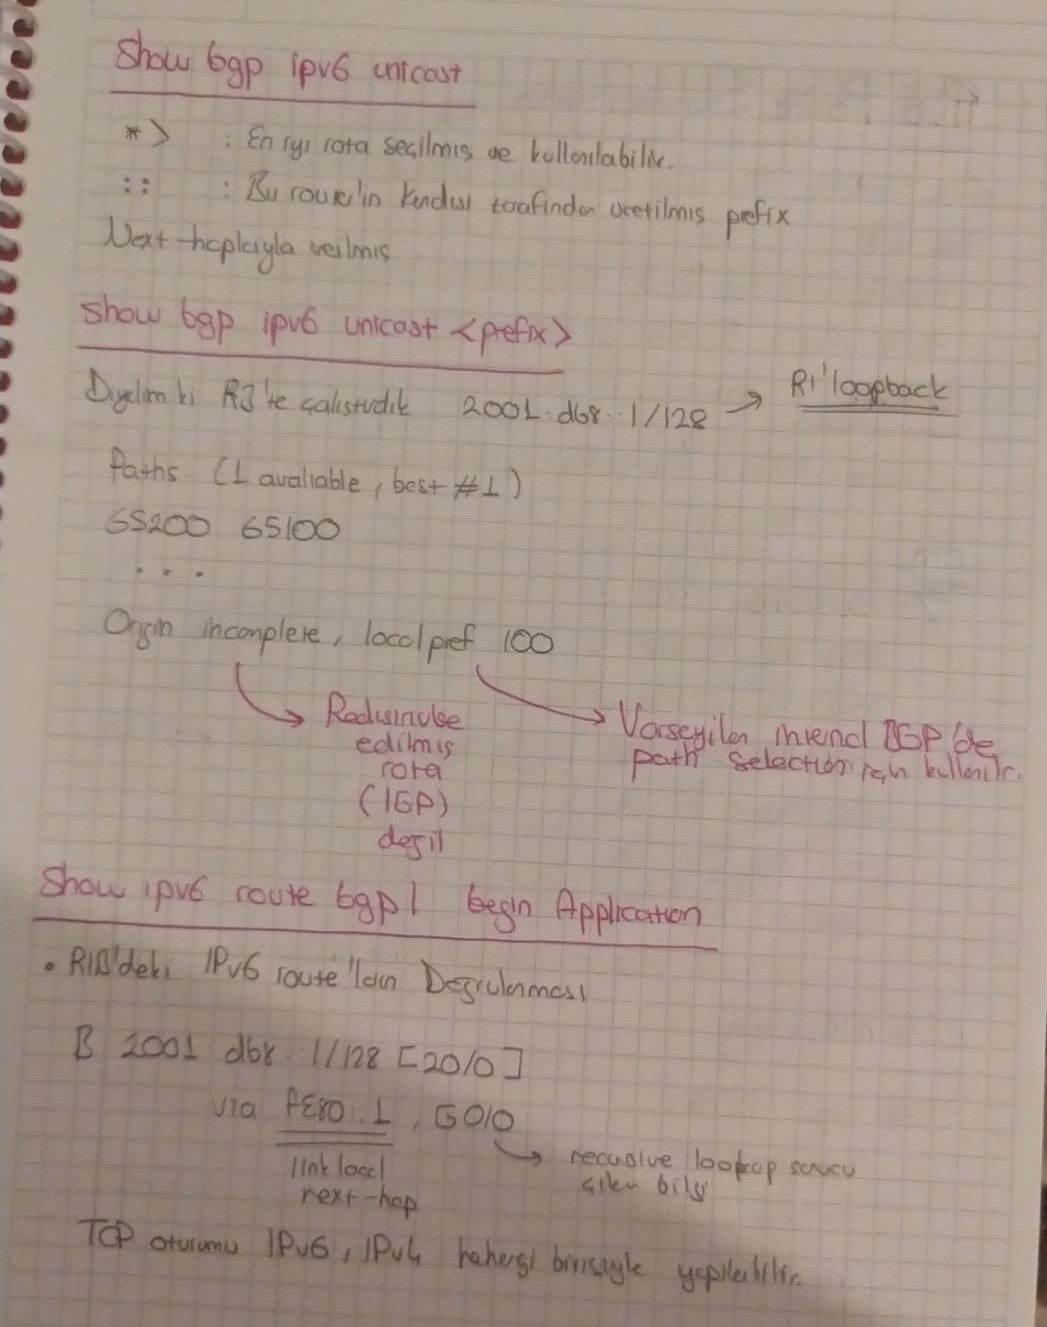 Show bgp ipv6 unicast
*> : En iyi rota seçilmiş ve kullanılabilir.
:: : Bu router'ın kendisi tarafından üretilmiş prefix
Next-hoplarıyla verilmiş
Show bgp ipv6 unicast <prefix>
Diyelim ki R3'te çalıştırdık 2001:db8::1/128 → R1'loopback
Paths (1 avaliable, best #1)
65200 65100
...
Origin incomplete, localpref 100
Redistribute
edilmiş
rota
(IGP)
değil
Varsayılan internal BGP'de
path selection için kullanılır.
Show ipv6 route bgp | begin Application
• RIB'deki IPv6 route'ların Doğrulanması
B 2001:db8::1/128 [20/0]
via FE80::1, G0/0
link local
next-hop
recursive lookup sonucu
çıkan bilgi
TCP oturumu IPv6, IPv4 herhangi birisiyle yapılabilir.